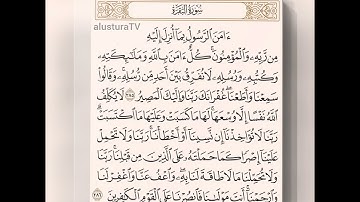 سُورَةُ البَقَرَةِ
alusturaTV
ءَامَنَ الرَّسُولُ بِمَا أُنزِلَ إِلَيْهِ
مِن رَّبِّهِ وَالْمُؤْمِنُونَ كُلٌّ ءَامَنَ بِاللَّهِ وَمَلَائِكَتِهِ
وَكُتُبِهِ وَرُسُلِهِ لَا نُفَرِّقُ بَيْنَ أَحَدٍ مِّن رُّسُلِهِ وَقَالُوا
سَمِعْنَا وَأَطَعْنَا غُفْرَانَكَ رَبَّنَا وَإِلَيْكَ الْمَصِيرُ ٢٨٥ لَا يُكَلِّفُ
اللَّهُ نَفْسًا إِلَّا وُسْعَهَا لَهَا مَا كَسَبَتْ وَعَلَيْهَا مَا اكْتَسَبَتْ
رَبَّنَا لَا تُؤَاخِذْنَا إِن نَّسِينَا أَوْ أَخْطَأْنَا رَبَّنَا وَلَا تَحْمِلْ
عَلَيْنَا إِصْرًا كَمَا حَمَلْتَهُ عَلَى الَّذِينَ مِن قَبْلِنَا رَبَّنَا
وَلَا تُحَمِّلْنَا مَا لَا طَاقَةَ لَنَا بِهِ وَاعْفُ عَنَّا وَاغْفِرْ لَنَا
وَارْحَمْنَا أَنتَ مَوْلَانَا فَانصُرْنَا عَلَى الْقَوْمِ الْكَافِرِينَ ٢٨٦